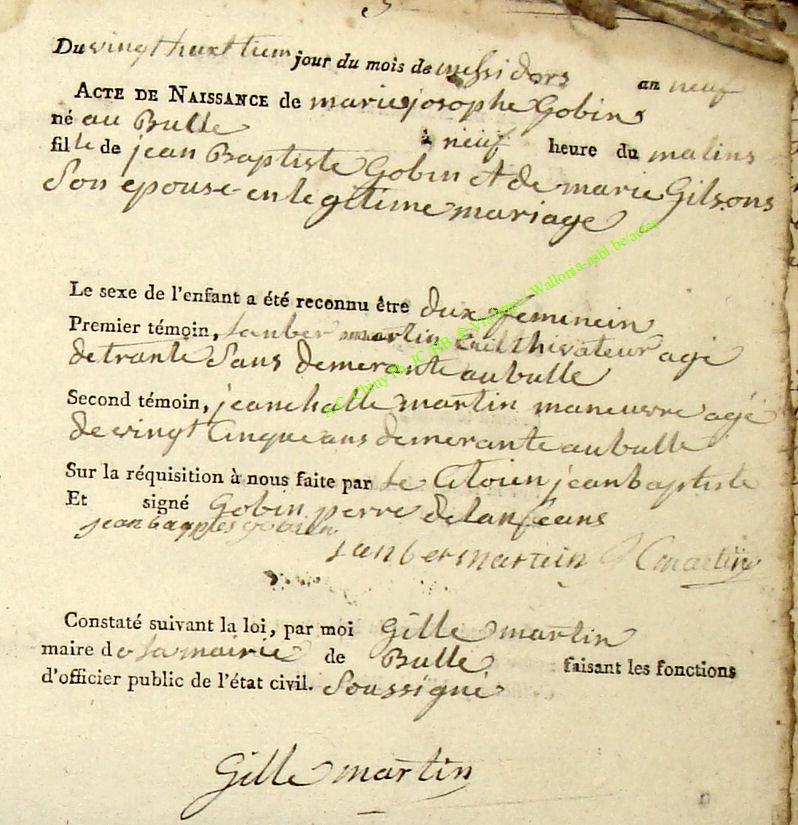 Du vingt huxttiem jour du mois de messidors an neuf
ACTE DE NAISSANCE de marie josophe Gobins
né au Bulle à neuf heure du matins
fille de jean Baptiste Gobin et de marie Gilsons
Son epouse en legitime mariage
Le sexe de l'enfant a été reconnu être dux feminein
Premier témoin, Lanber martin Culthivateur agé
de trante Sans demerante au bulle
Second témoin, jean martin maneuvre agé
de vingt Cinque ans demerante au bulle
Sur la réquisition à nous faite par Le Citoien jean baptiste
Et signé Gobin perre de lanfeans
jean gobien
Lanbermartin martin
Constaté suivant la loi, par moi Gille martin
maire de La mairie de Bulle faisant les fonctions
d'officier public de l'état civil. Soussigné
Gille martin